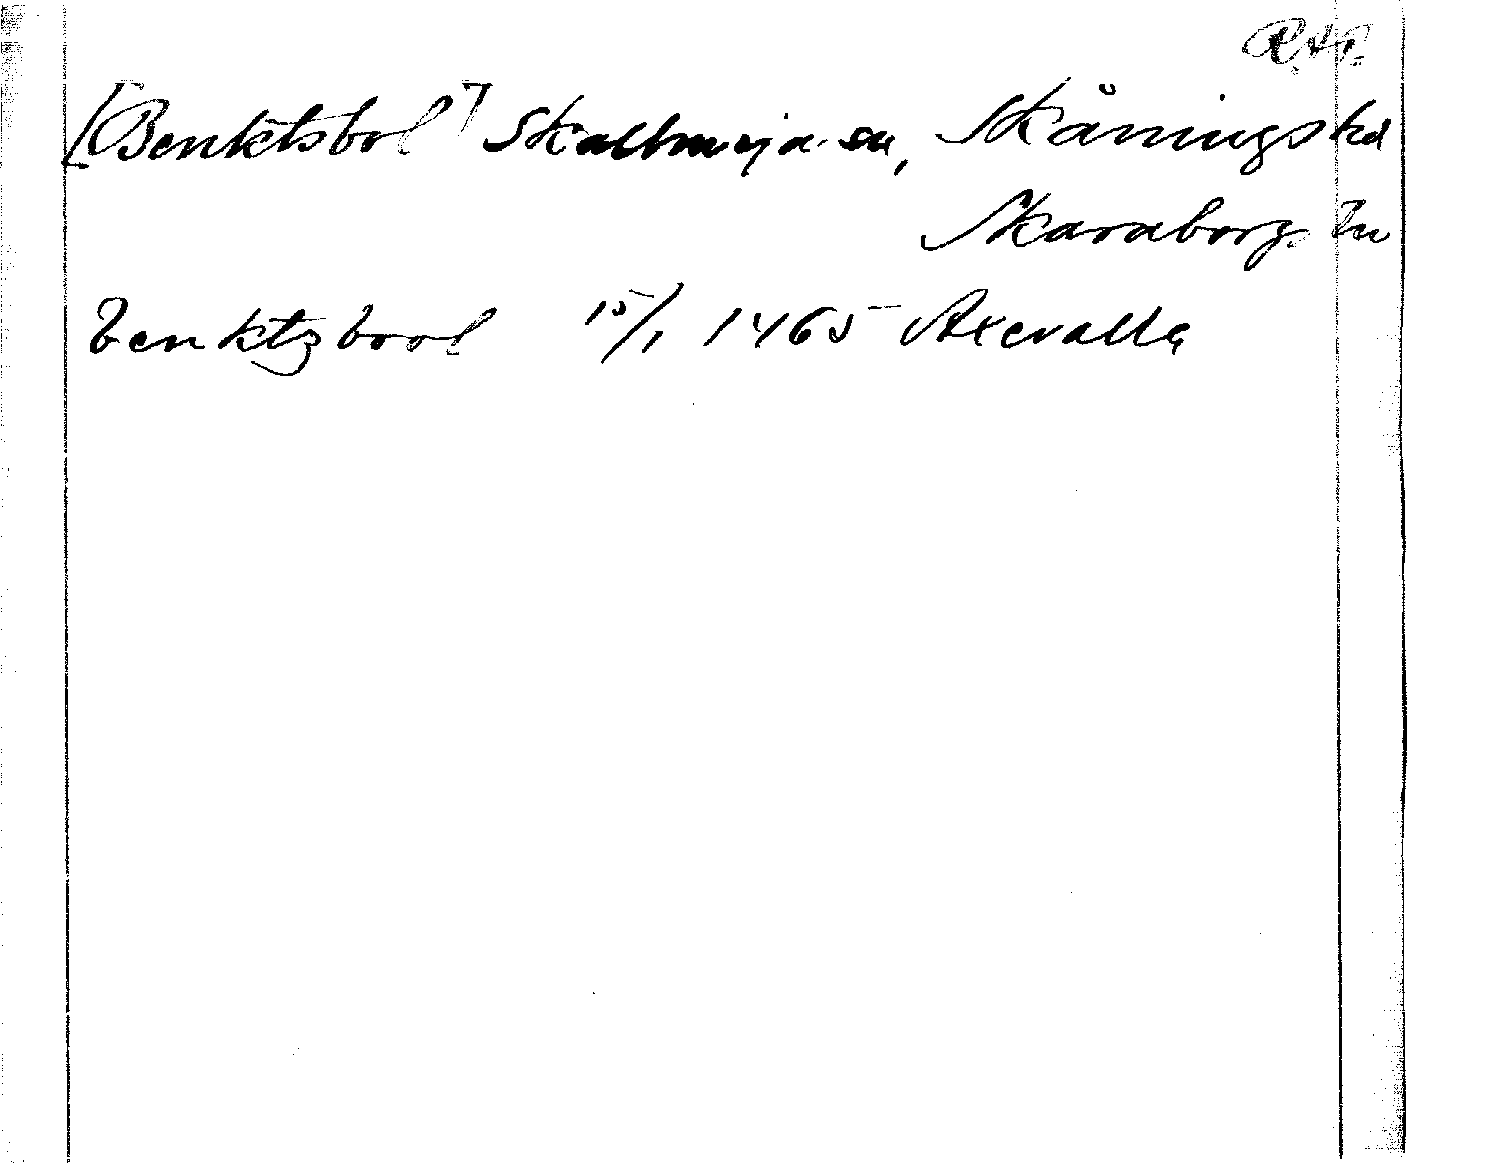 R.A.P.
[Benktsbol] Skallmeja sn, Skånings hd
Skaraborgs län
benktzbool 15/1 1465 Axevalla